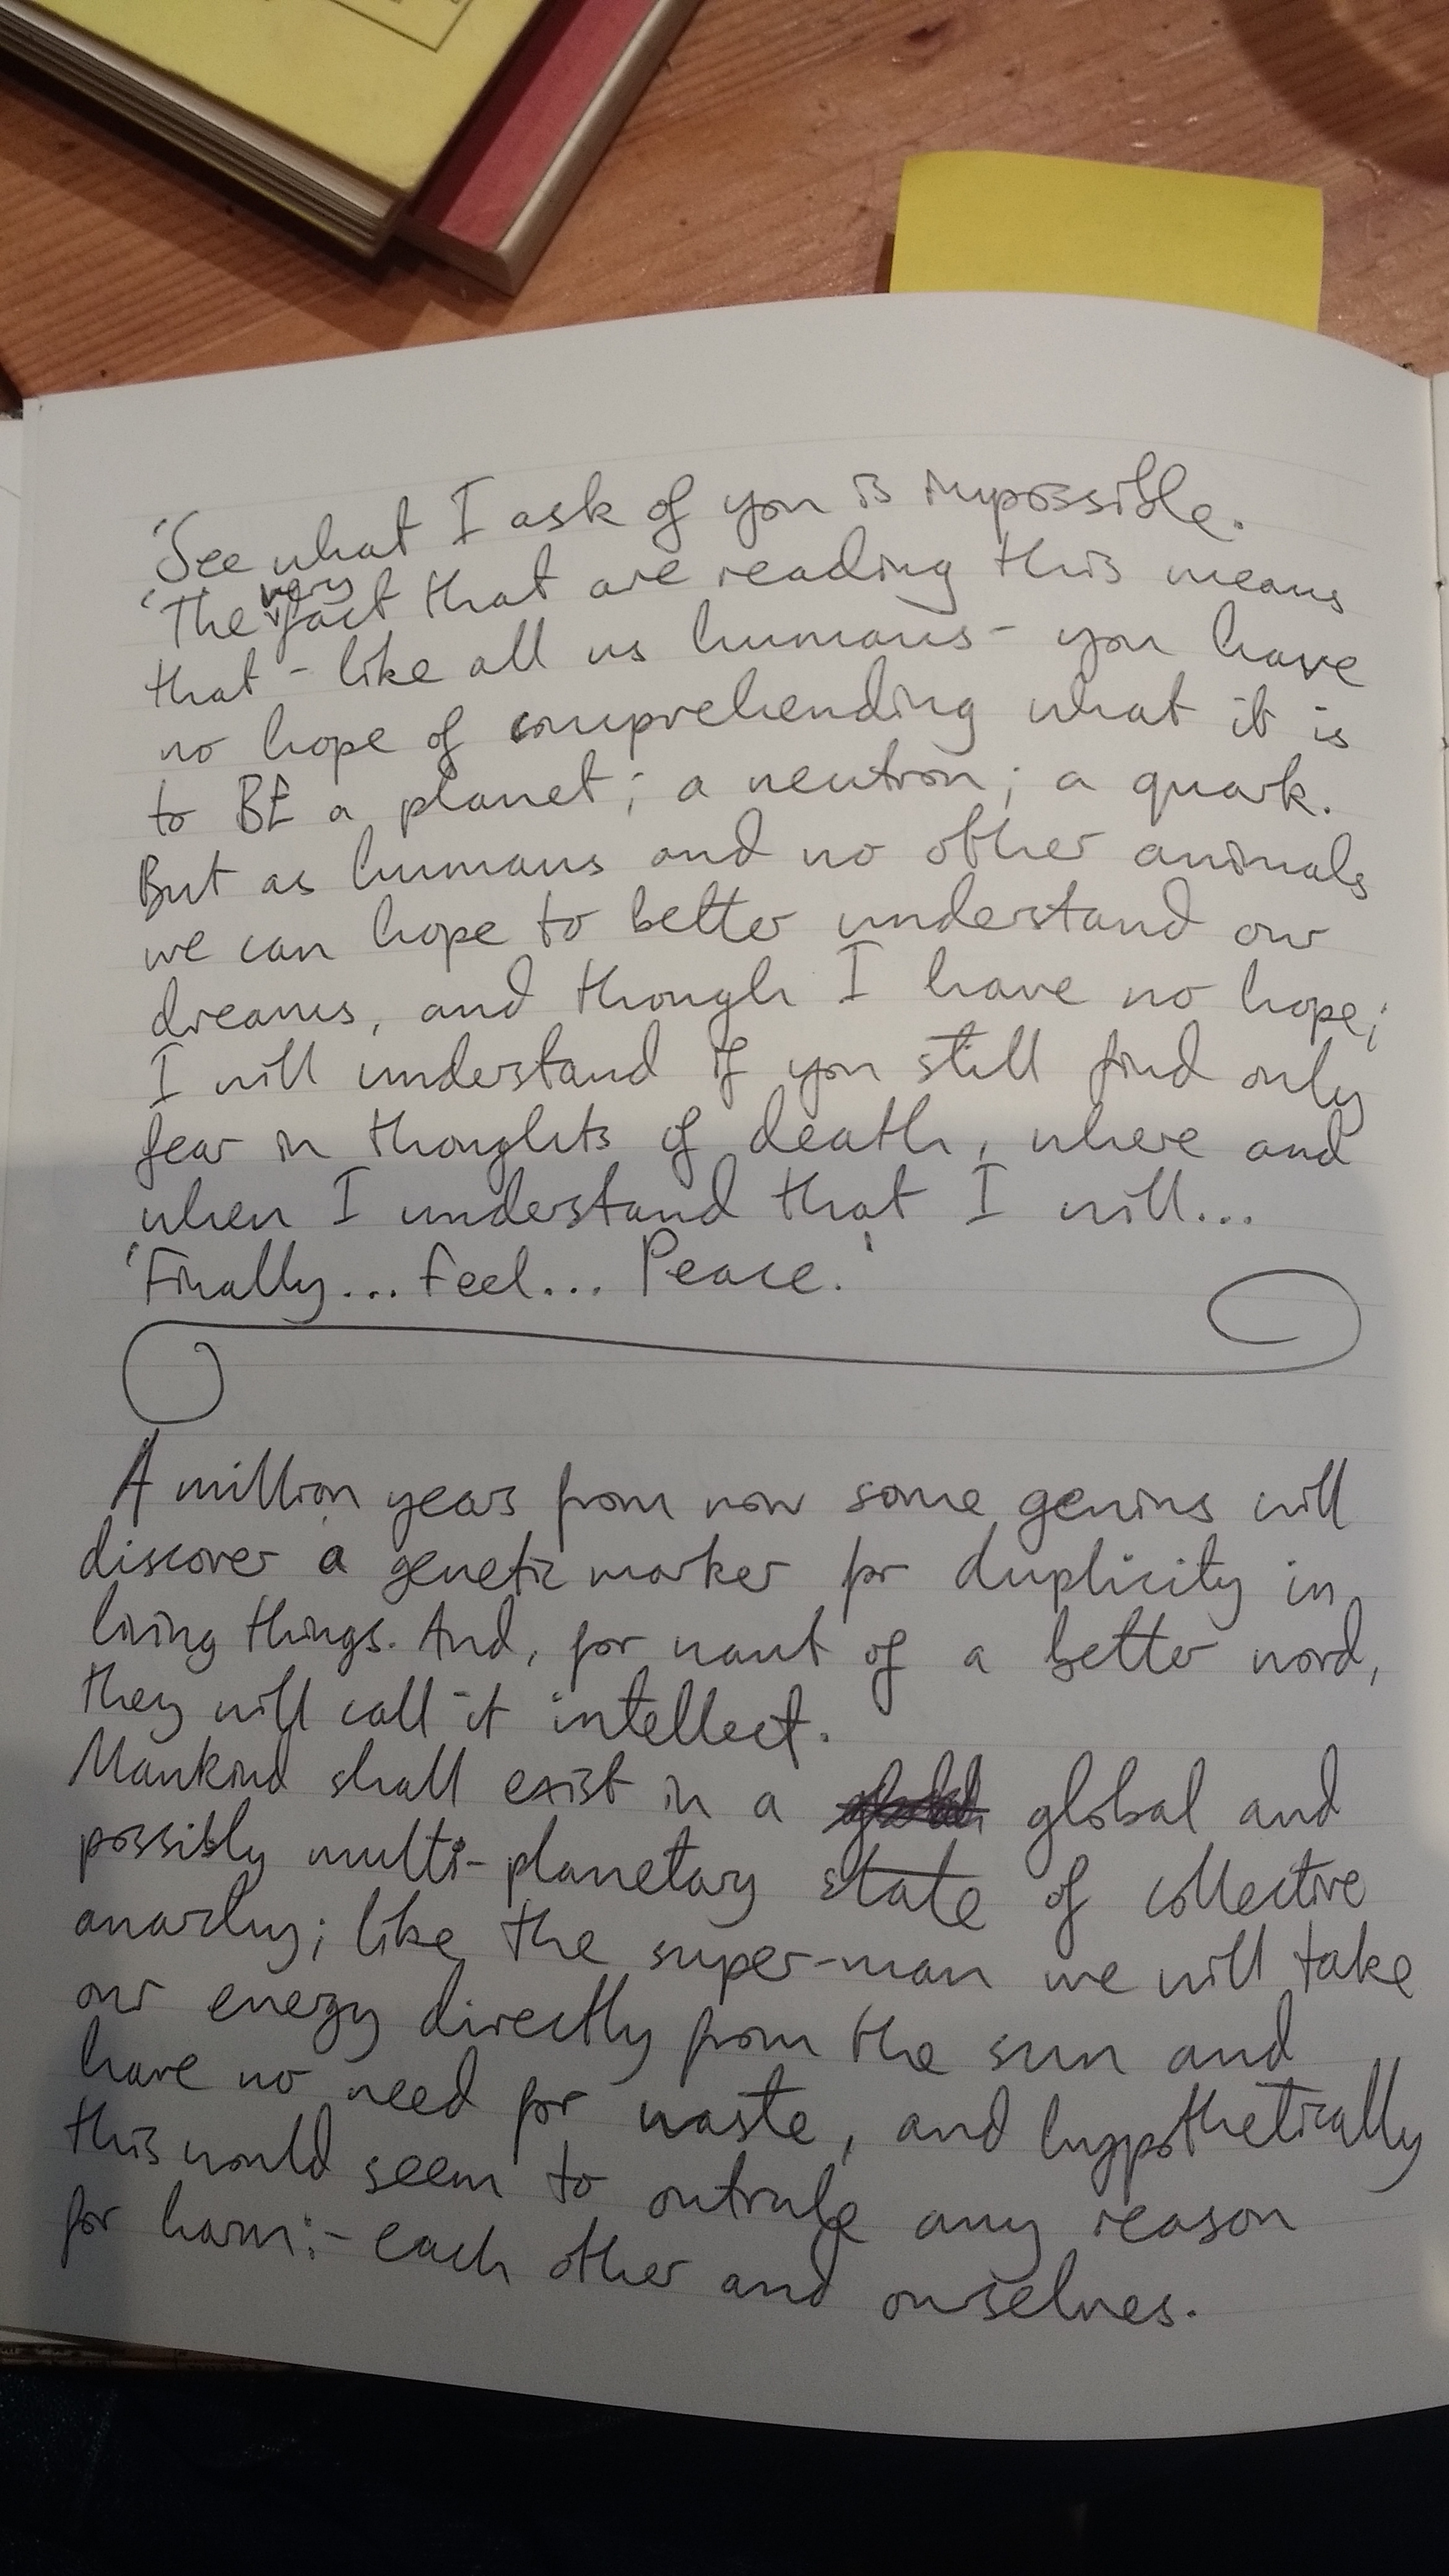 'See what I ask of you is impossible.
'The very fact that are reading this means
that - like all us humans - you have
no hope of comprehending what it is
to BE a planet; a neutron; a quark.
But as humans and no other animals
we can hope to better understand our
dreams, and though I have no hope;
I will understand if you still find only
fear in thoughts of death, where and
when I understand that I will...
'Finally... Feel... Peace.'
A million years from now some genius will
discover a genetic marker for duplicity in
living things. And, for want of a better word,
they will call it intellect.
Mankind shall exist in a global and
possibly multi-planetary state of collective
anarchy; like the super-man we will take
our energy directly from the sun and
have no need for waste, and hypothetically
this would seem to outrule any reason
for harm:- each other and ourselves.